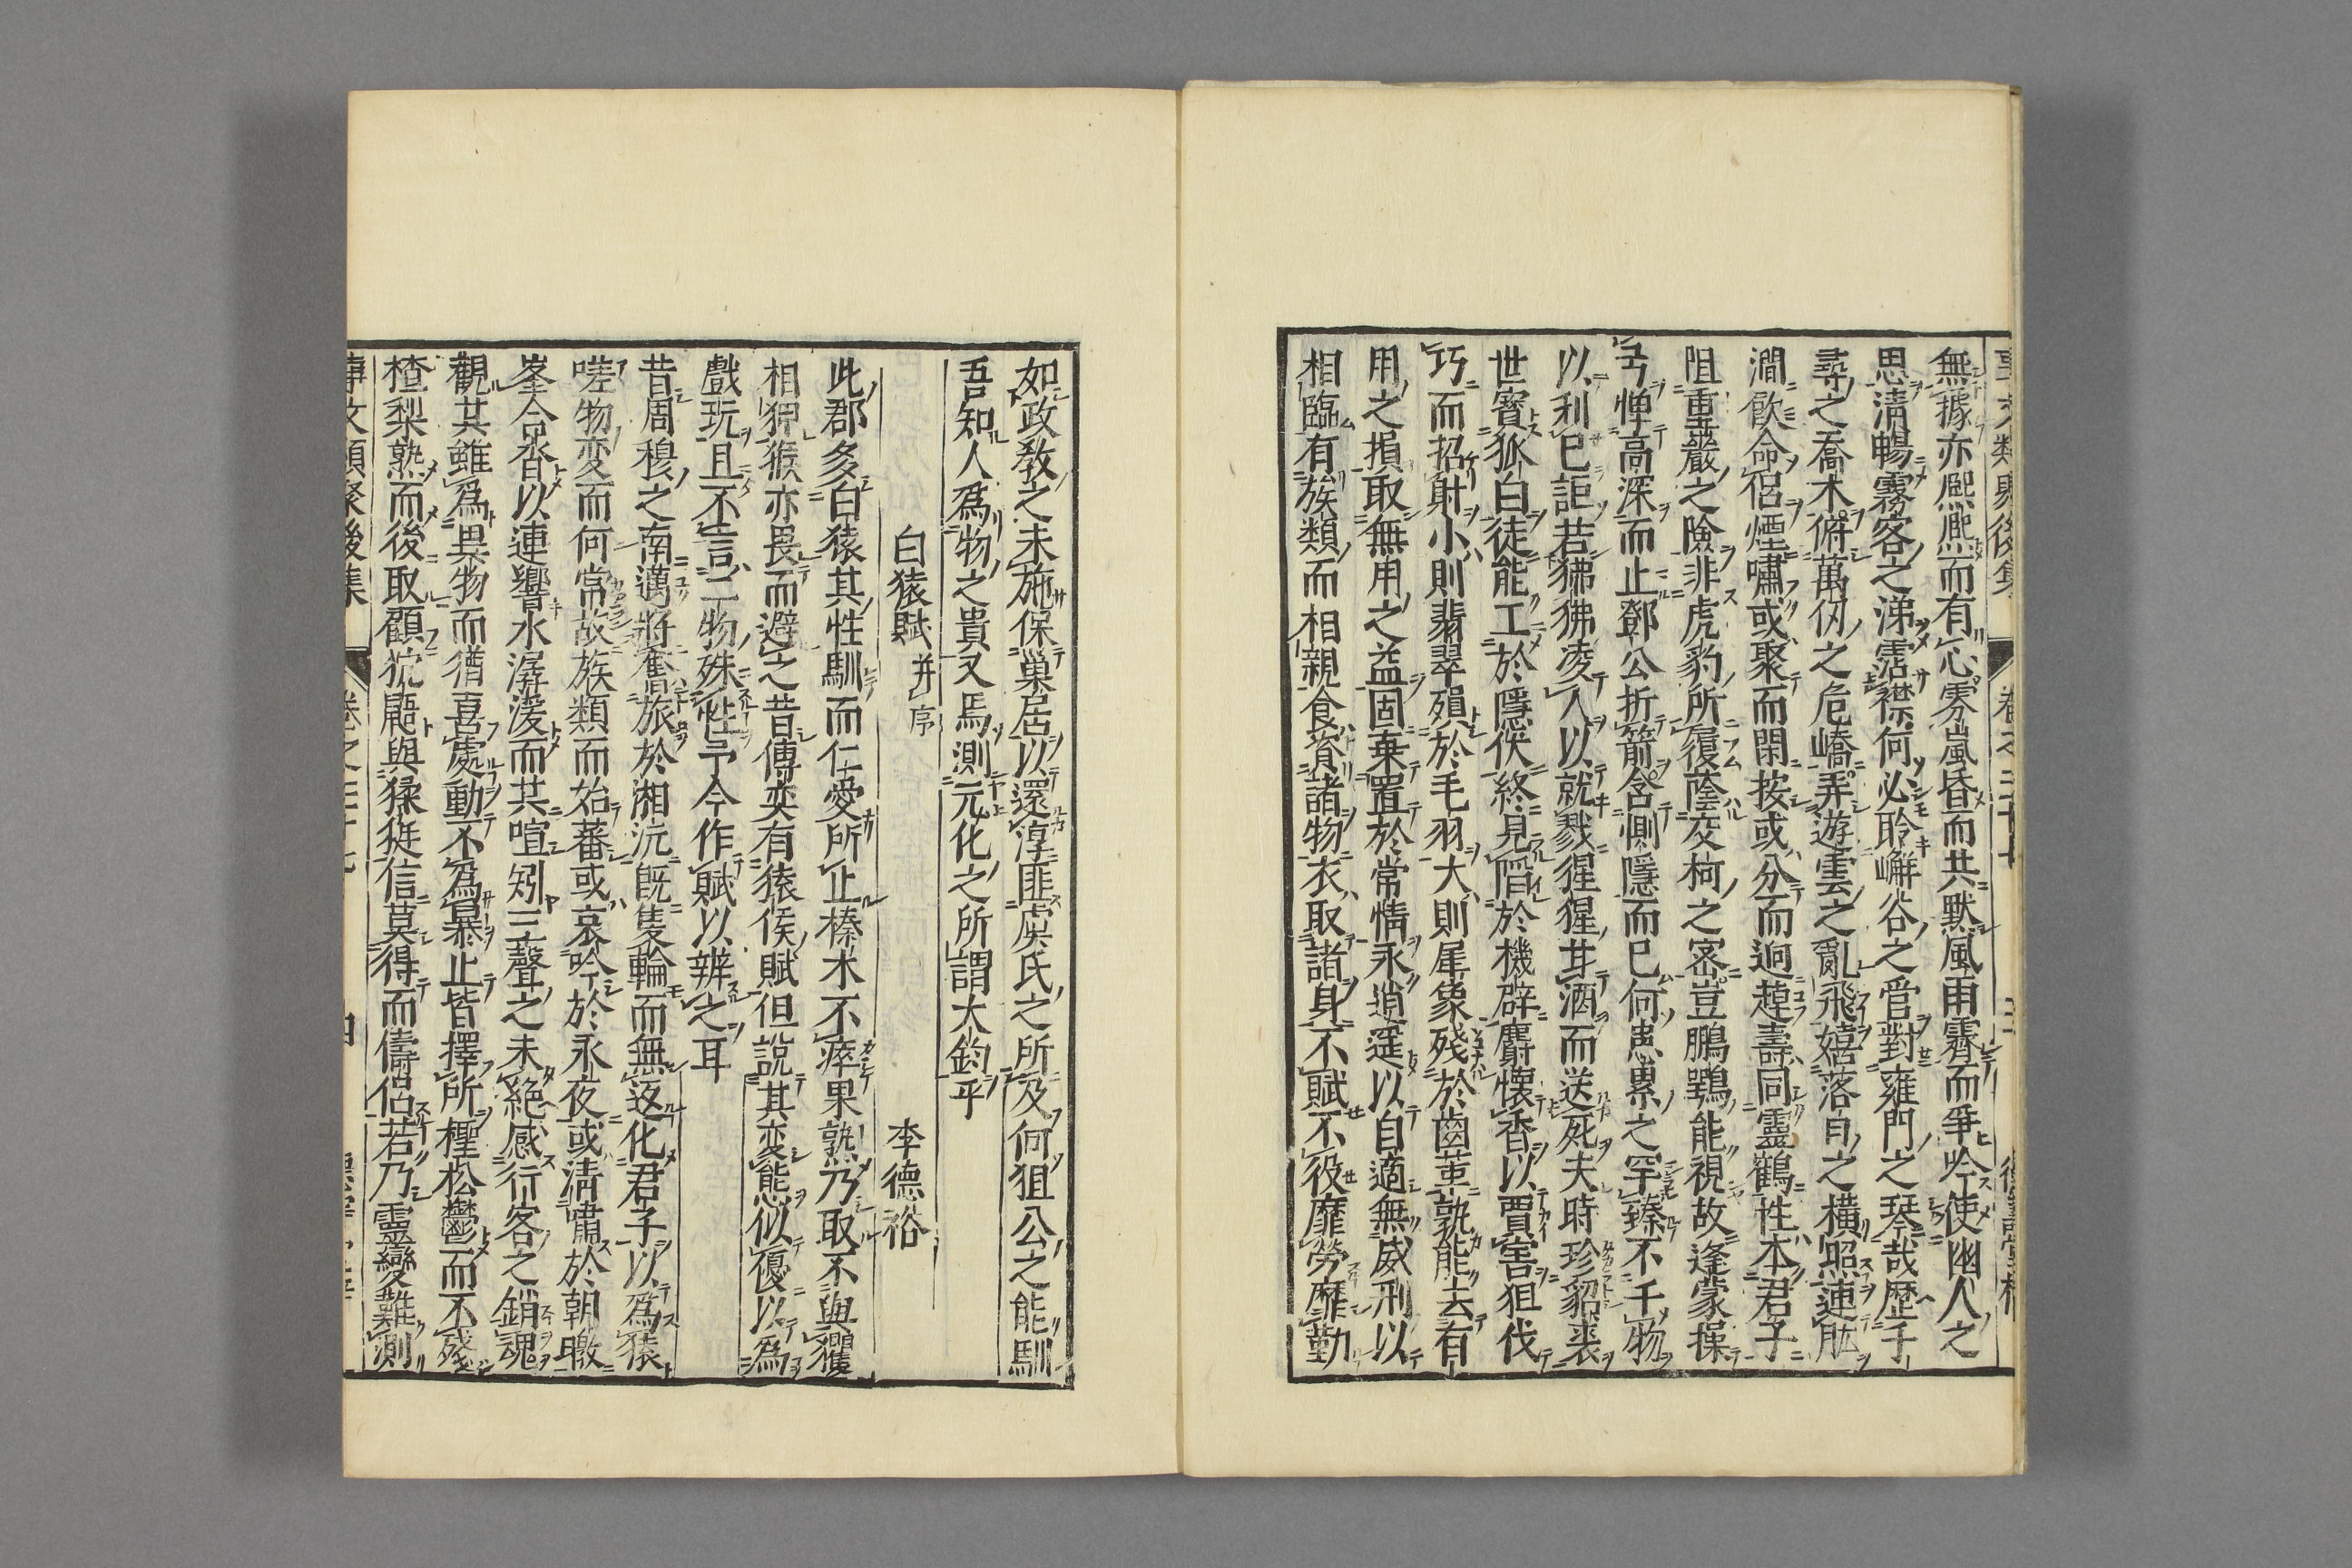 無據亦熈熈而有心雰嵐昏而共默風雨霽而爭吟使幽人之
思清暢霧客之涕霑襟何必聆嶰谷之管對雍門之琴哉歷千
尋之喬木俯萬仞之危嶠弄遊雲之亂飛嬉落月之橫照連肱
澗飲命侶煙嘯或聚而閑按或分而迥趠壽同靈鶴性本君子
阻重巖之險非虎豹所履蔭交柯之密豈鵬鶚能視故逢蒙操
弓憚高深而止鄧公折箭含惻隱而已何患累之罕臻不千物
以利已詎若狒狒凌人以就戮猩猩甘酒而送死夫時珍貂裘
世寶狐白徒能工於隱伏終見陷於機辟麝懷香以賈害狙伐
巧而招射小則翡翠殞於毛羽大則犀象殘於齒革孰能去有
用之損取無用之益固棄置於常情永逍遥以自適無威刑以
相臨有族類而相親食資諸物衣取諸身不賦不役靡勞靡勤
如政教之未施保巢居以還淳匪虞氏之所及何狙公之能馴
吾知人爲物之貴又焉測元化之所謂大鈞乎
白猿賦 并序 李德裕
此郡多白猿其性馴而仁愛所止榛木不瘁果熟乃取不與玃
相狎猴亦畏而避之昔傅奕有猿侯賦但說其変態似優以為
戲玩且不言二物殊性予今作賦以辨之耳
昔周穆之南邁將奮旅於湘沅旣隻輪而無返化君子以爲猿
嗟物変而何常故族類而始蕃或哀吟於永夜或清嘯於朝暾
峯合沓以連響水潺湲而共喧矧三聲之未絕感行客之銷魂
觀其雖爲異物而猶喜處動不為暴止皆擇所檉松鬱而不殘
楂梨熟而後取顧狖鼯與猱狿信莫得而儔侶若乃靈變難測